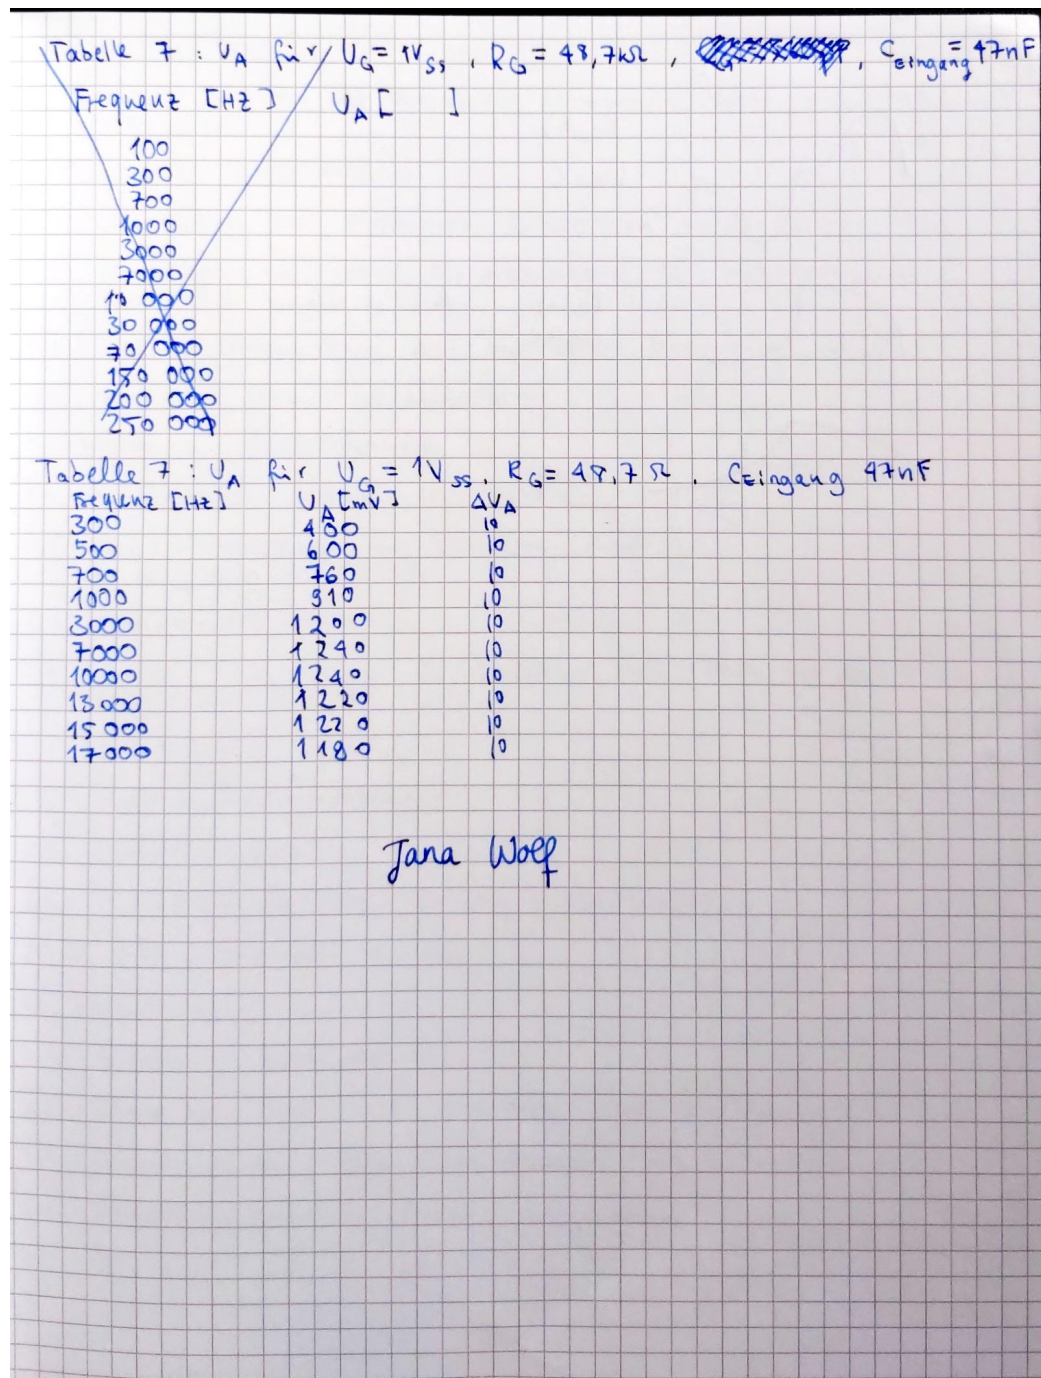 Tabelle 7 : UA für UG = 1Vss, RG = 48,7kΩ, , CEingang = 47nF
Frequenz [HZ] UA [ ]
100
300
700
1000
3000
7000
10 000
30 000
70 000
150 000
200 000
250 000
Tabelle 7 : UA für UG = 1Vss, RG = 48,7 Ω , CEingang 47nF
Frequenz [Hz] UA [mV] ΔUA
300 400 10
500 600 10
700 760 10
1000 910 10
3000 1200 10
7000 1240 10
10000 1240 10
13 000 1220 10
15 000 1220 10
17000 1180 10
Jana Wolf